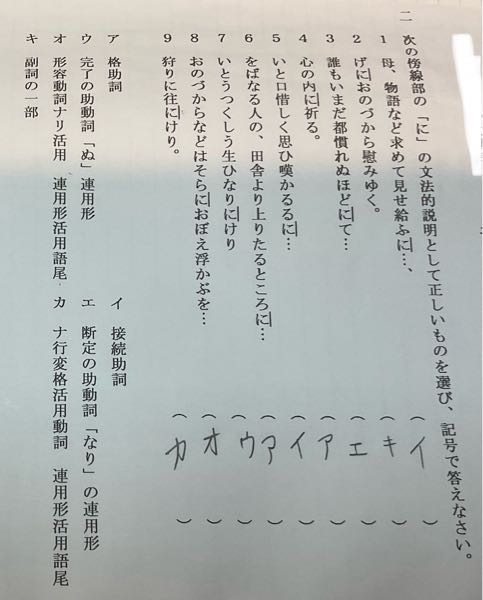 二 次の傍線部の「に」の文法的説明として正しいものを選び、記号で答えなさい。
1 母、物語など求めて見せ給ふに…、 （イ）
2 げにおのづから慰みゆく。 （キ）
3 誰もいまだ都慣れぬほどにて… （エ）
4 心の内に祈る。 （ア）
5 いと口惜しく思ひ嘆かるるに… （イ）
6 をばなる人の、田舎より上りたるところに… （ア）
7 いとうつくしう生ひなりにけり （ウ）
8 おのづからなどはそらにおぼえ浮かぶを… （オ）
9 狩りに往にけり。 （カ）
ア 格助詞 イ 接続助詞
ウ 完了の助動詞「ぬ」連用形 エ 断定の助動詞「なり」の連用形
オ 形容動詞ナリ活用 連用形活用語尾 カ ナ行変格活用動詞 連用形活用語尾
キ 副詞の一部